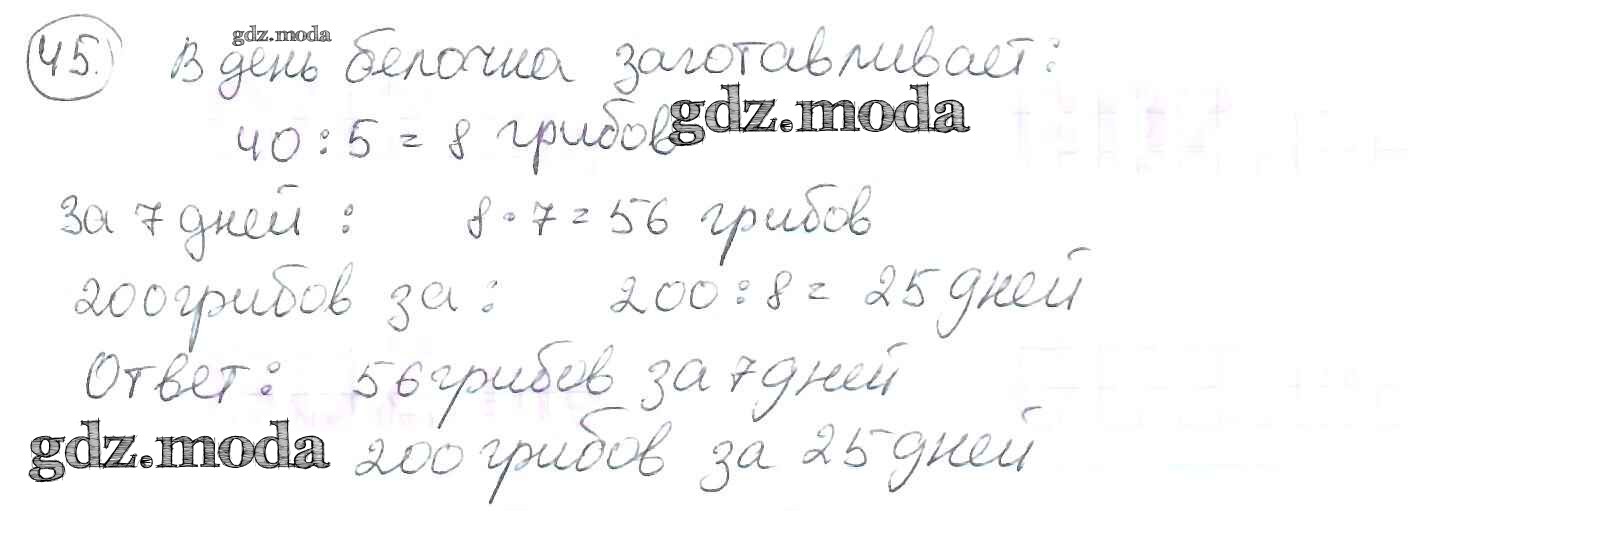 gdz.moda
45. В день белочка заготавливает:
gdz.moda
40 : 5 = 8 грибов
За 7 дней : 8 · 7 = 56 грибов
200 грибов за : 200 : 8 = 25 дней
Ответ: 56 грибов за 7 дней
gdz.moda
200 грибов за 25 дней